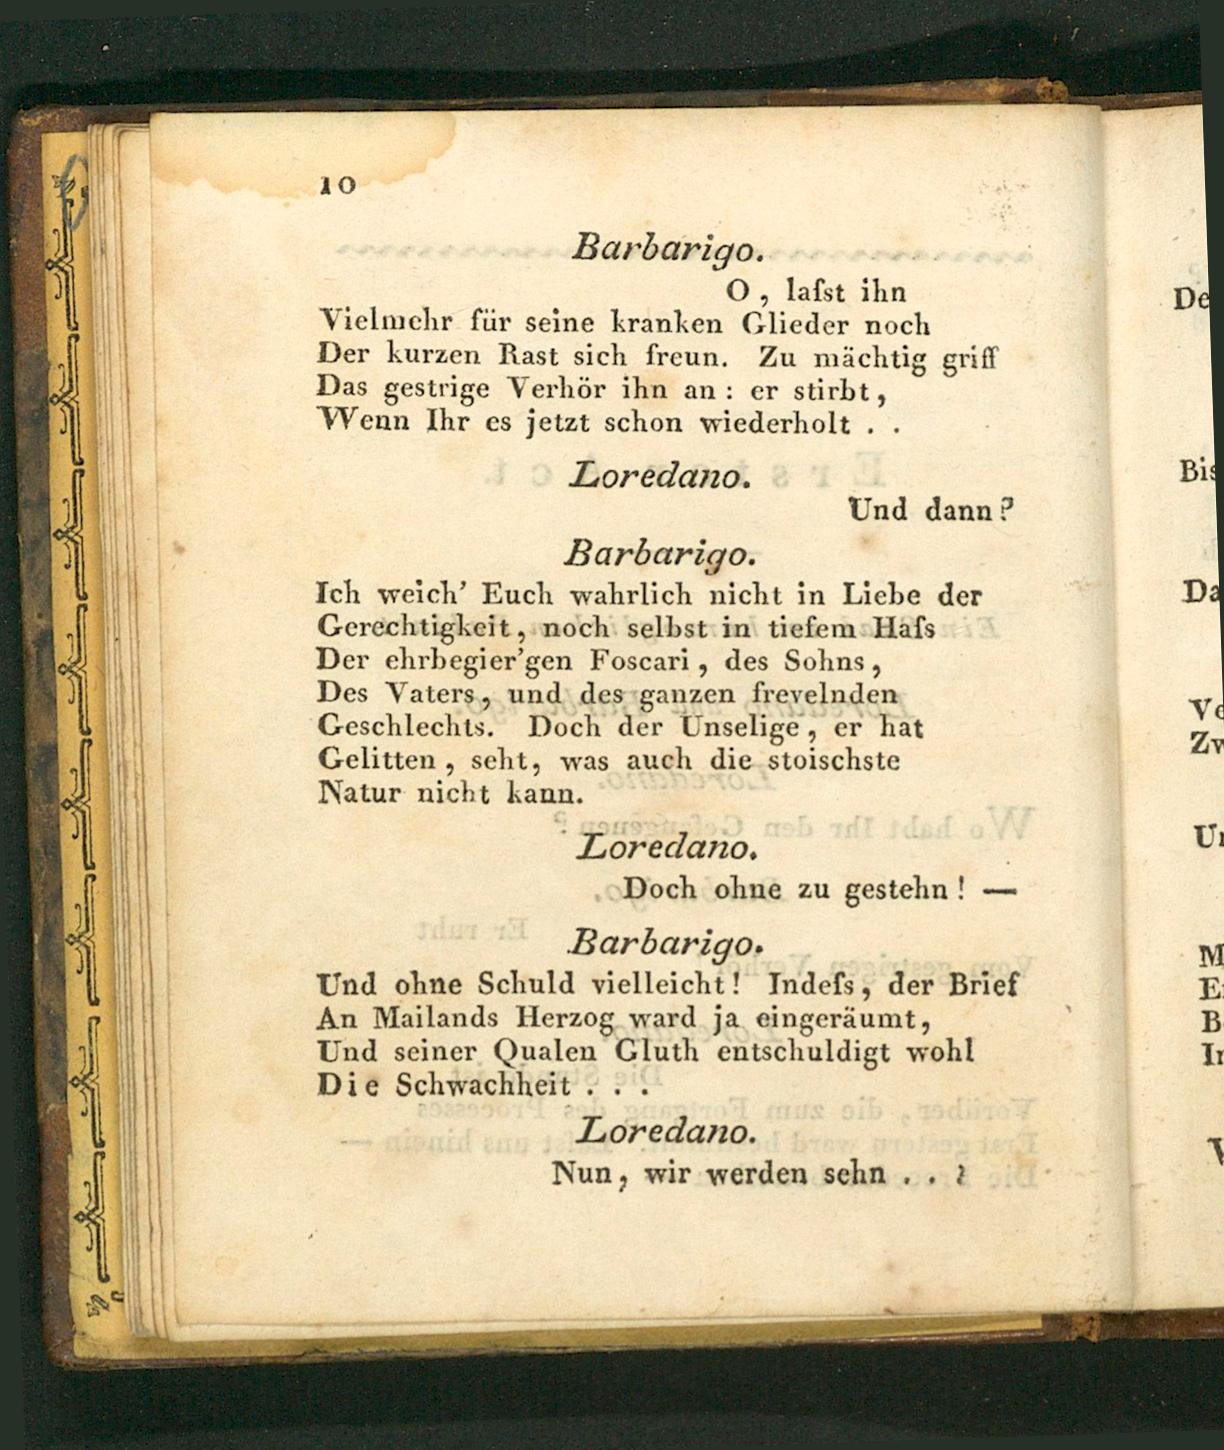 10
Barbarigo.
O, laſst ihn
Vielmehr für seine kranken Glieder noch
Der kurzen Rast sich freun. Zu mächtig griff
Das gestrige Verhör ihn an: er stirbt,
Wenn Ihr es jetzt schon wiederholt . .
Loredano.
Und dann?
Barbarigo.
Ich weich' Euch wahrlich nicht in Liebe der
Gerechtigkeit, noch selbst in tiefem Haſs
Der ehrbegier'gen Foscari, des Sohns,
Des Vaters, und des ganzen frevelnden
Geschlechts. Doch der Unselige, er hat
Gelitten, seht, was auch die stoischste
Natur nicht kann.
Loredano.
Doch ohne zu gestehn! —
Barbarigo.
Und ohne Schuld vielleicht! Indeſs, der Brief
An Mailands Herzog ward ja eingeräumt,
Und seiner Qualen Gluth entschuldigt wohl
Die Schwachheit . . .
Loredano.
Nun, wir werden sehn . .
De
Bis
Da
Ve
Zw
M
B